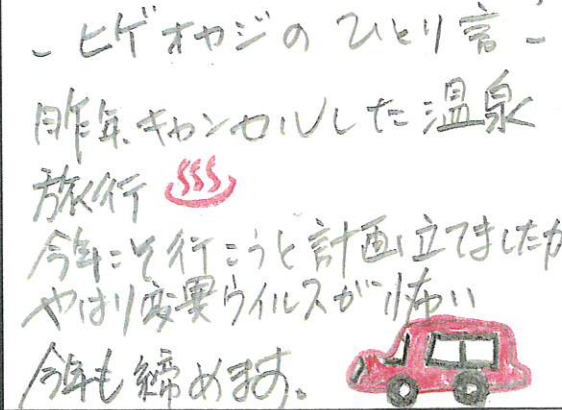 - ヒゲオヤジのひとり言 -
昨年、キャンセルした温泉
旅行 ♨
今年こそ行こうと計画立てましたが
やはり変異ウイルスが怖い
今年も締めます。